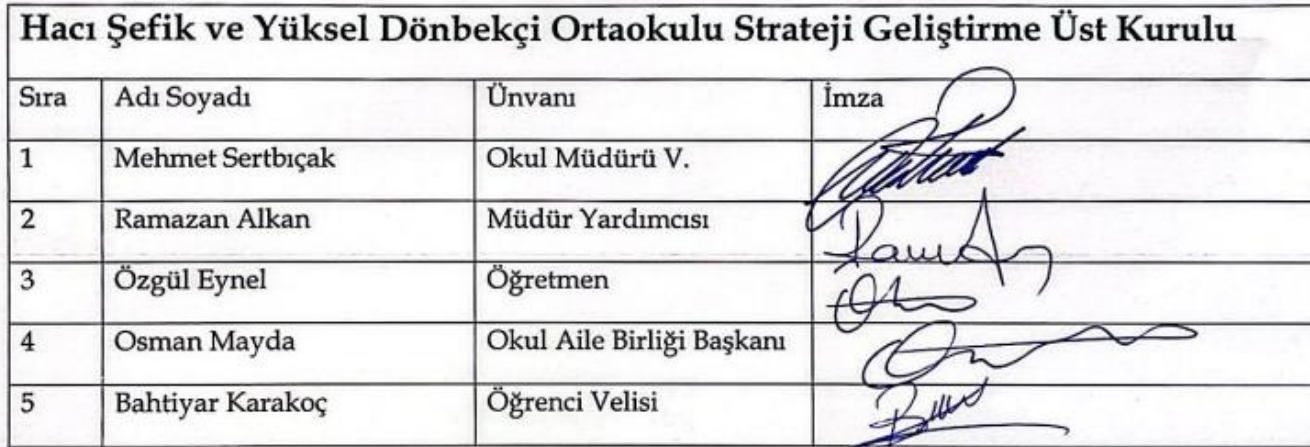 Hacı Şefik ve Yüksel Dönbekçi Ortaokulu Strateji Geliştirme Üst Kurulu
Sıra Adı Soyadı Ünvanı İmza
1 Mehmet Sertbıçak Okul Müdürü V.
2 Ramazan Alkan Müdür Yardımcısı
3 Özgül Eynel Öğretmen
4 Osman Mayda Okul Aile Birliği Başkanı
5 Bahtiyar Karakoç Öğrenci Velisi